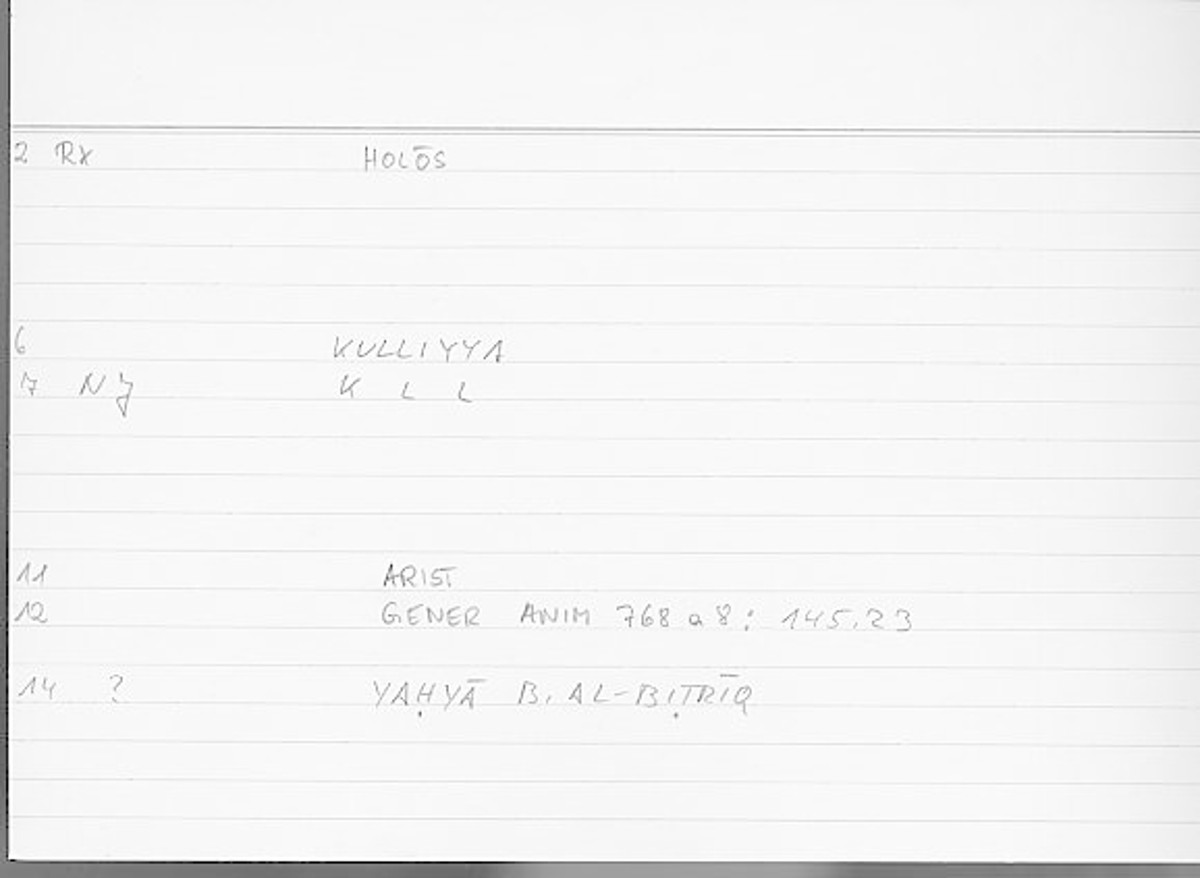 2 RX HOLŌS
6 KULLIYYA
17 NJ K L L
11 ARIST
12 GENER ANIM 768 a 8 : 145.23
14 ? YAḤYĀ B. AL-BIṬRĪQ